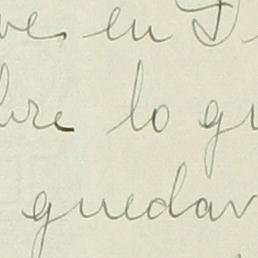 ve en
bre lo qu
quedar